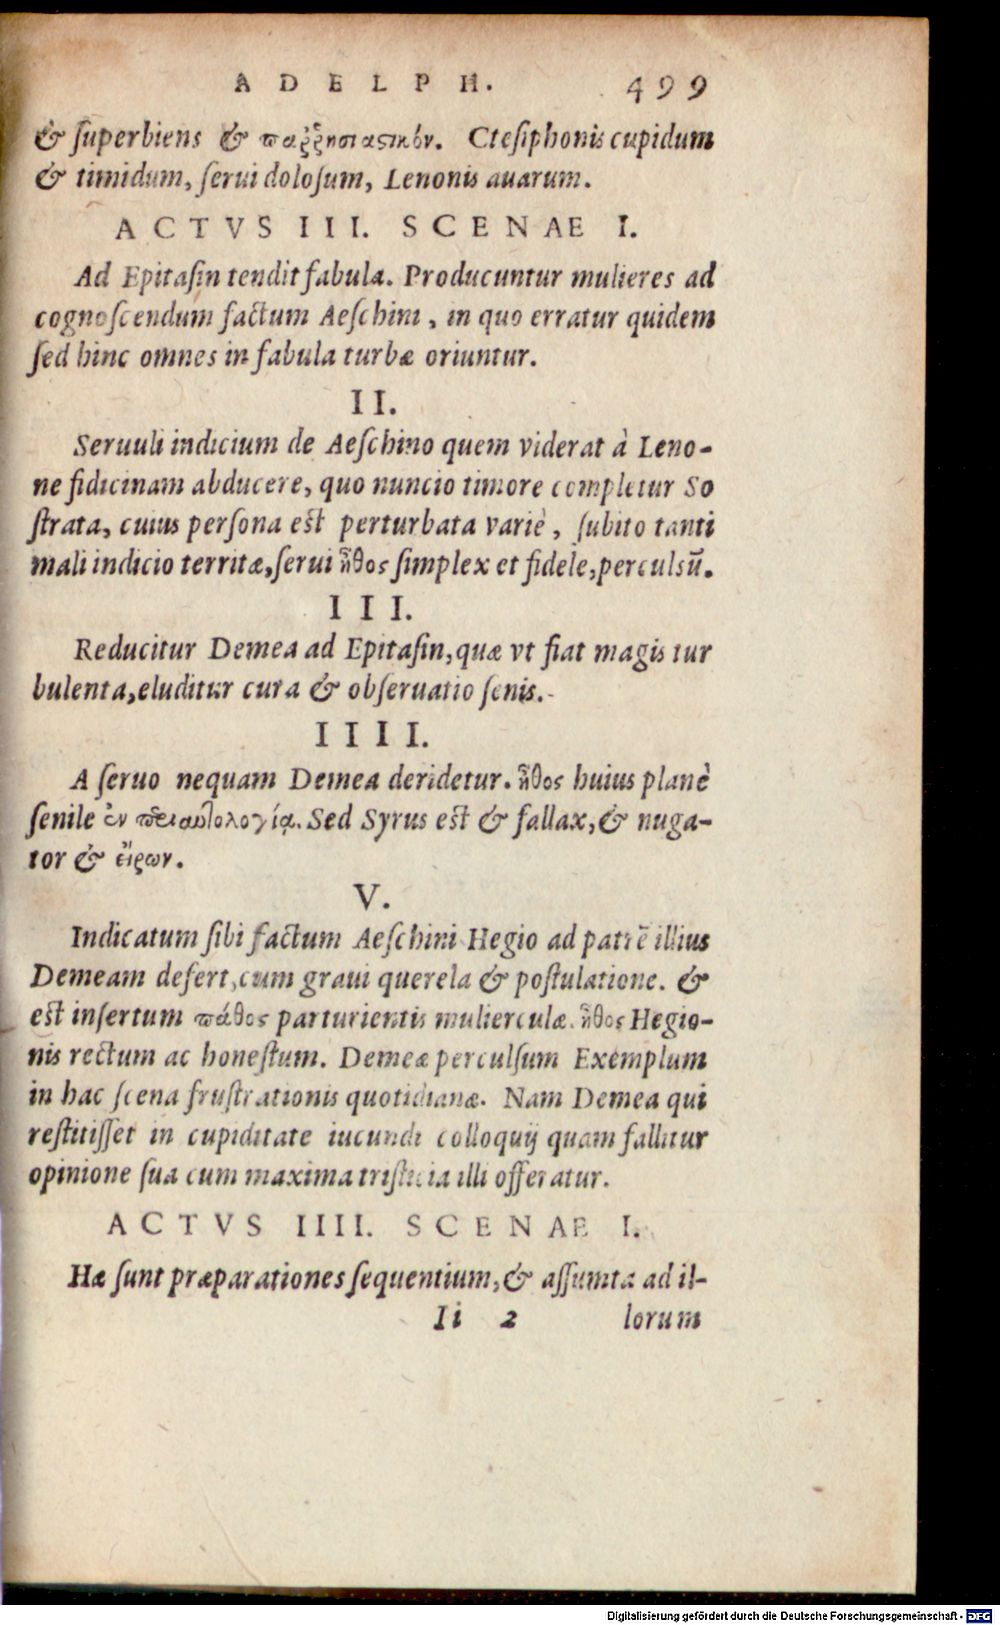 ADELPH. 499
& ſuperbiens & παῤῥησιαςικόν. Cteſiphonis cupidum
& timidum, ſerui doloſum, Lenonis auarum.
ACTVS III. SCENAE I.
Ad Epitaſin tendit fabula. Producuntur mulieres ad
cognoſcendum factum Aeſchini, in quo erratur quidem
ſed hinc omnes in fabula turbæ oriuntur.
II.
Seruuli indicium de Aeſchino quem viderat à Leno-
ne fidicinam abducere, quo nuncio timore completur So
ſtrata, cuius perſona eſt perturbata variè, ſubito tanti
mali indicio territæ, ſerui ἦθος ſimplex et fidele, perculsū.
III.
Reducitur Demea ad Epitaſin, quæ vt fiat magis tur
bulenta, eluditur cura & obſeruatio ſenis.
IIII.
A ſeruo nequam Demea deridetur. ἦθος huius planè
ſenile ἐν περιαυτολογίᾳ. Sed Syrus eſt & fallax, & nuga-
tor & εἴρων.
V.
Indicatum ſibi factum Aeſchini Hegio ad patrē illius
Demeam defert, cum graui querela & poſtulatione. &
eſt inſertum πάθος parturientis mulierculæ. ἦθος Hegio-
nis rectum ac honeſtum. Demeæ perculſum Exemplum
in hac ſcena fruſtrationis quotidianæ. Nam Demea qui
reſtitiſſet in cupiditate iucundi colloquij quam fallitur
opinione ſua cum maxima triſticia illi offeratur.
ACTVS IIII. SCENAE I.
Hæ ſunt præparationes ſequentium, & aſſumta ad il-
Ii 2 lorum
Digitalisierung gefördert durch die Deutsche Forschungsgemeinschaft - DFG